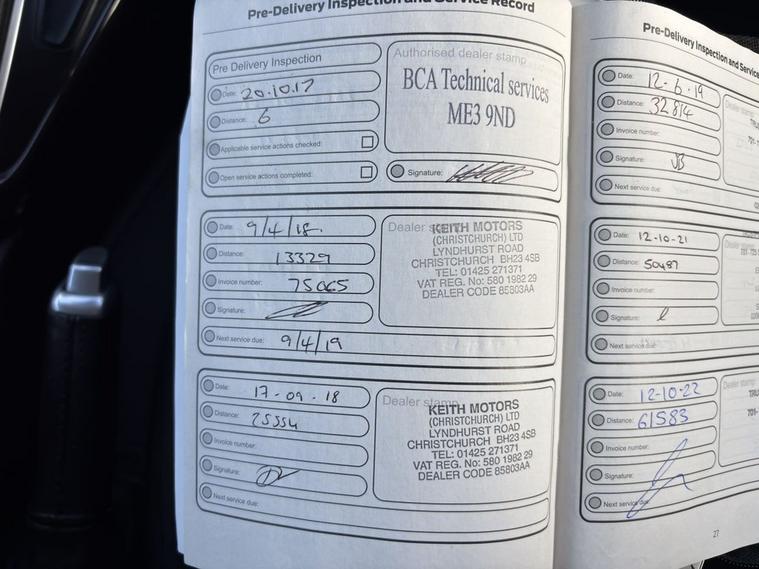 Pre-Delivery Inspection and Service Record
Pre Delivery Inspection
Date: 20.10.17
Distance: 6
Applicable service actions checked:
Open service actions completed:
Authorised dealer stamp
BCA Technical services
ME3 9ND
Signature:
Date: 9/4/18.
Distance: 13329
Invoice number: 75065
Signature:
Next service due: 9/4/19
Dealer
KEITH MOTORS
(CHRISTCHURCH) LTD
LYNDHURST ROAD
CHRISTCHURCH BH23 4SB
TEL: 01425 271371
VAT REG. No: 580 1982 29
DEALER CODE 85803AA
Date: 17-09-18
Distance: 25554
Invoice number:
Signature:
Next service due:
Dealer stamp
KEITH MOTORS
(CHRISTCHURCH) LTD
LYNDHURST ROAD
CHRISTCHURCH BH23 4SB
TEL: 01425 271371
VAT REG. No: 580 1982 29
DEALER CODE 85803AA
Pre-Delivery Inspection and Service
Date: 12-6-19
Distance: 32814
Invoice number:
Signature: JB
Next service due:
Dealer stamp
Date: 12-10-21
Distance: 50487
Invoice number:
Signature:
Next service due:
Date: 12-10-22
Distance: 61583
Invoice number:
Signature:
Next service due:
Dealer stamp
27